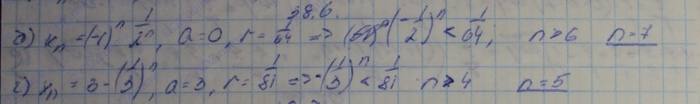 38.6.
б) xₙ = (-1)ⁿ 1/2ⁿ, a=0, r=1/64 => (-1/2)ⁿ < 1/64; n>6 n=7
г) xₙ = 3-(1/3)ⁿ, a=3, r=1/81 => -(1/3)ⁿ < 1/81 n>4 n=5